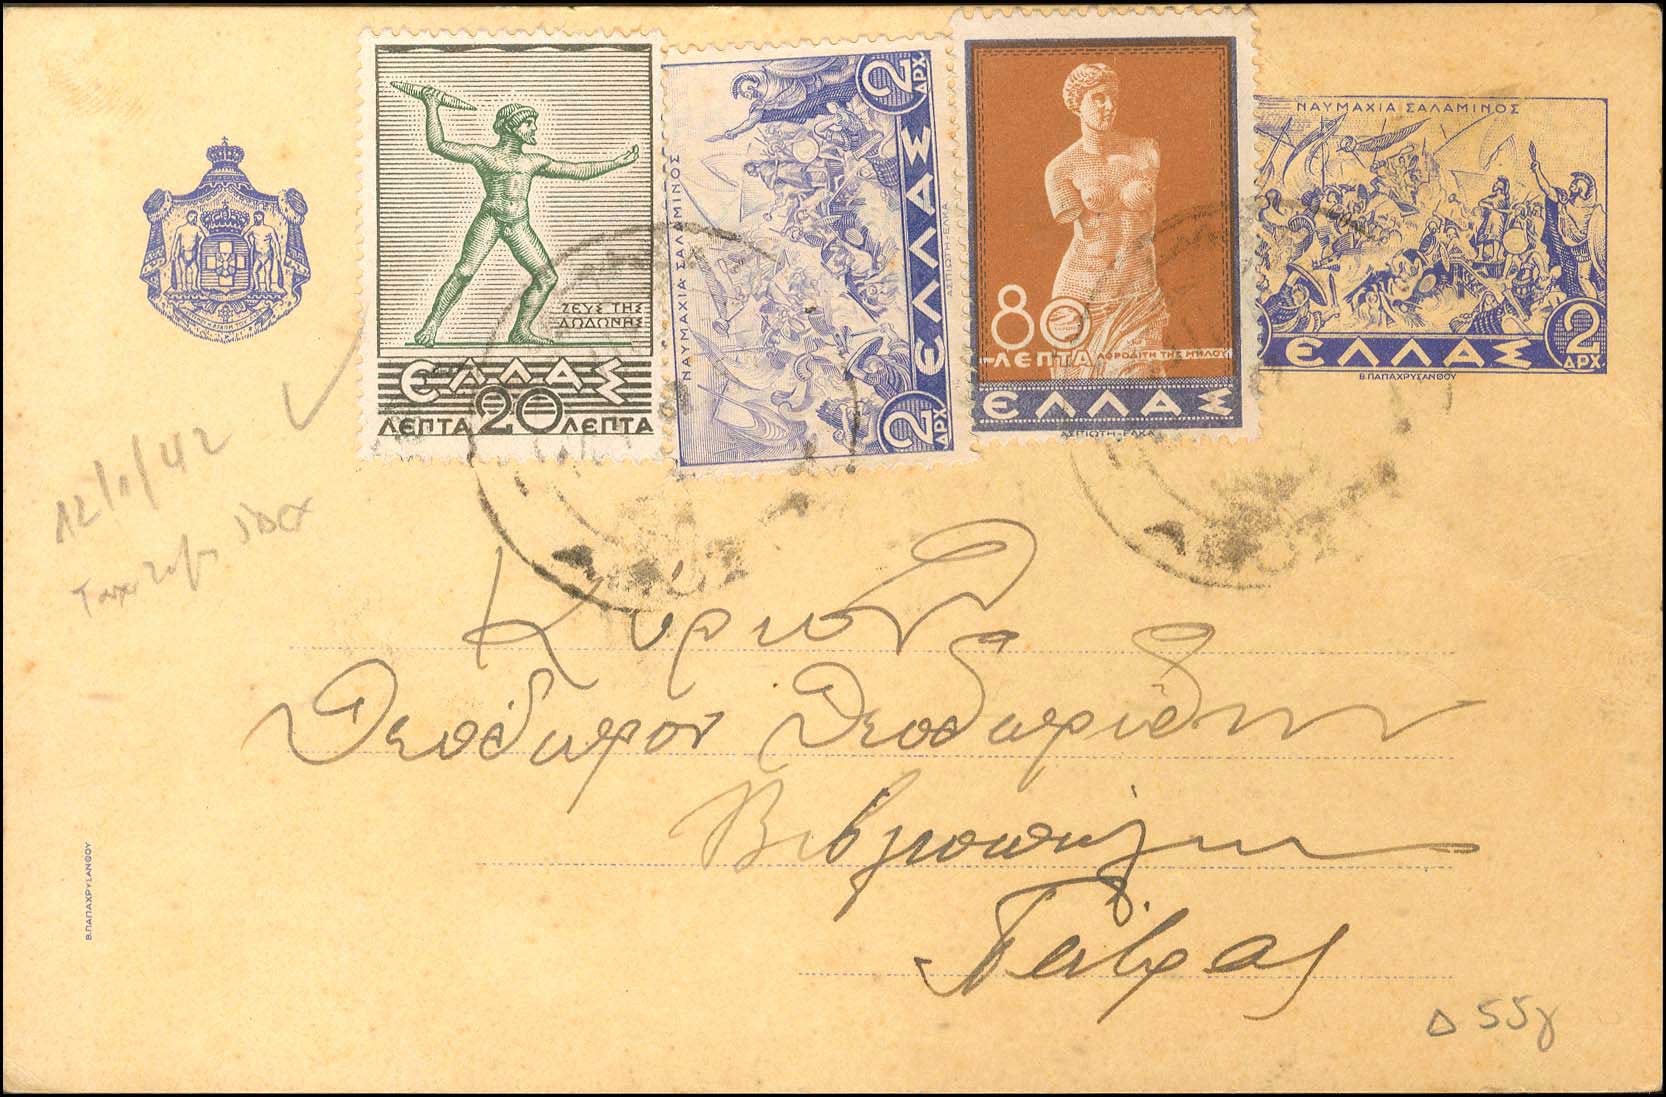 ΖΕΥΣ ΤΗΣ
ΔΩΔΩΝΗΣ
ΕΛΛΑΣ
ΛΕΠΤΑ 20 ΛΕΠΤΑ
ΝΑΥΜΑΧΙΑ ΣΑΛΑΜΙΝΟΣ
2 ΔΡΧ
ΕΛΛΑΣ
2 ΔΡΧ
ΑΣΠΙΩΤΗ-ΕΛΚΑ
80
ΛΕΠΤΑ ΑΦΡΟΔΙΤΗ ΤΗΣ ΜΗΛΟΥ
ΕΛΛΑΣ
ΑΣΠΙΩΤΗ-ΕΛΚΑ
ΝΑΥΜΑΧΙΑ ΣΑΛΑΜΙΝΟΣ
ΕΛΛΑΣ
2 ΔΡΧ
Β.ΠΑΠΑΧΡΥΣΑΝΘΟΥ
12/1/42
Κύριον
Θεόδωρον Θεοδωρίδην
Βιβλιοπώλην
Πάτρας
Β.ΠΑΠΑΧΡΥΣΑΝΘΟΥ
Δ 55γ